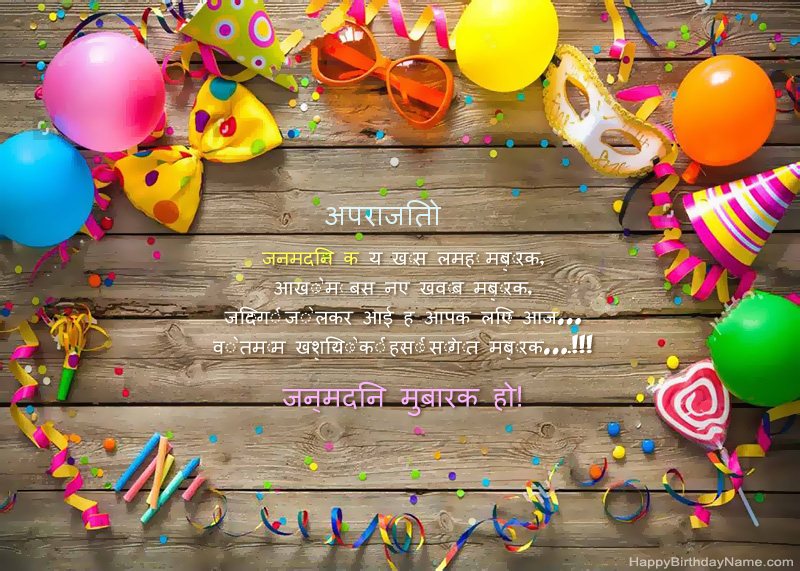 अपराजितो
जनमदिन क य खास लमह मबारक,
आखों म बस नए खवाब मबारक,
जिंदगी जो लेकर आई ह आपक लिए आज...
वो तमाम खुशियों की हसीं सौगात मबारक...!!!
जन्मदिन मुबारक हो!
HappyBirthdayName.com